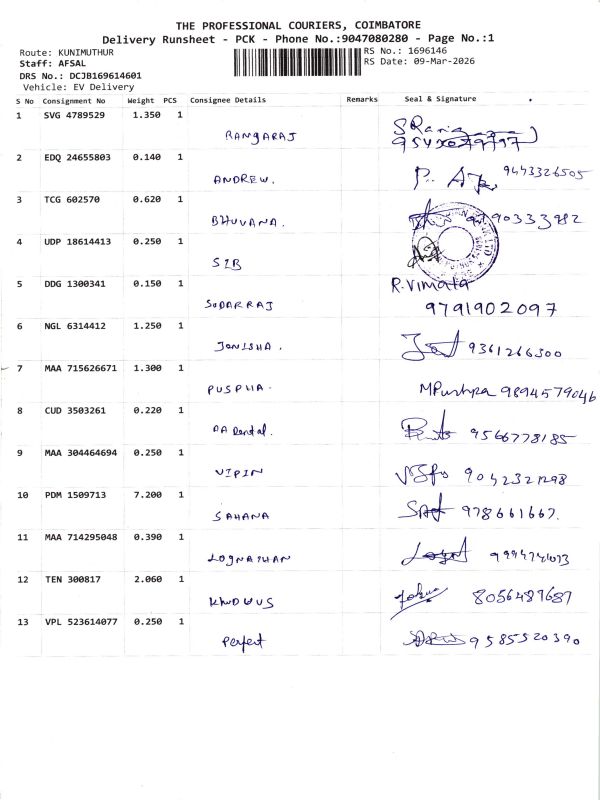 THE PROFESSIONAL COURIERS, COIMBATORE
Delivery Runsheet - PCK - Phone No.:9047080280 - Page No.:1
Route: KUNIMUTHUR RS No.: 1696146
Staff: AFSAL RS Date: 09-Mar-2026
DRS No.: DCJB169614601
Vehicle: EV Delivery
S No Consignment No Weight PCS Consignee Details Remarks Seal & Signature
1 SVG 4789529 1.350 1
RANGARAJ
2 EDQ 24655803 0.140 1
ANDREW. 9443326505
3 TCG 602570 0.620 1
BHUVANA.
4 UDP 18614413 0.250 1
SIB
5 DDG 1300341 0.150 1 R.Vimala
SUDARRAJ 9791902097
6 NGL 6314412 1.250 1
JONISHA. 9361266300
7 MAA 715626671 1.300 1
PUSPHA. MPushpa 9894579046
8 CUD 3503261 0.220 1
AA Dental. 9566778185
9 MAA 304464694 0.250 1
VIPIN
10 PDM 1509713 7.200 1
SAHANA 978661667.
11 MAA 714295048 0.390 1
LOGNATHAN
12 TEN 300817 2.060 1
8056487687
13 VPL 523614077 0.250 1
Perfect 9585520390